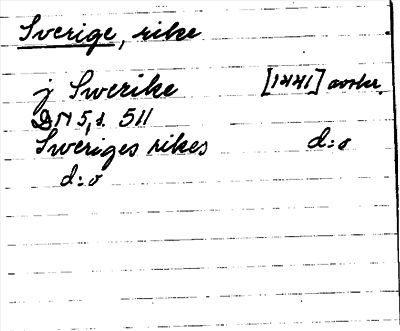 Sverige, rike
j Swerike [1441] avskr.
DN 5, s. 511
Sweriges rikes d:o
d:o